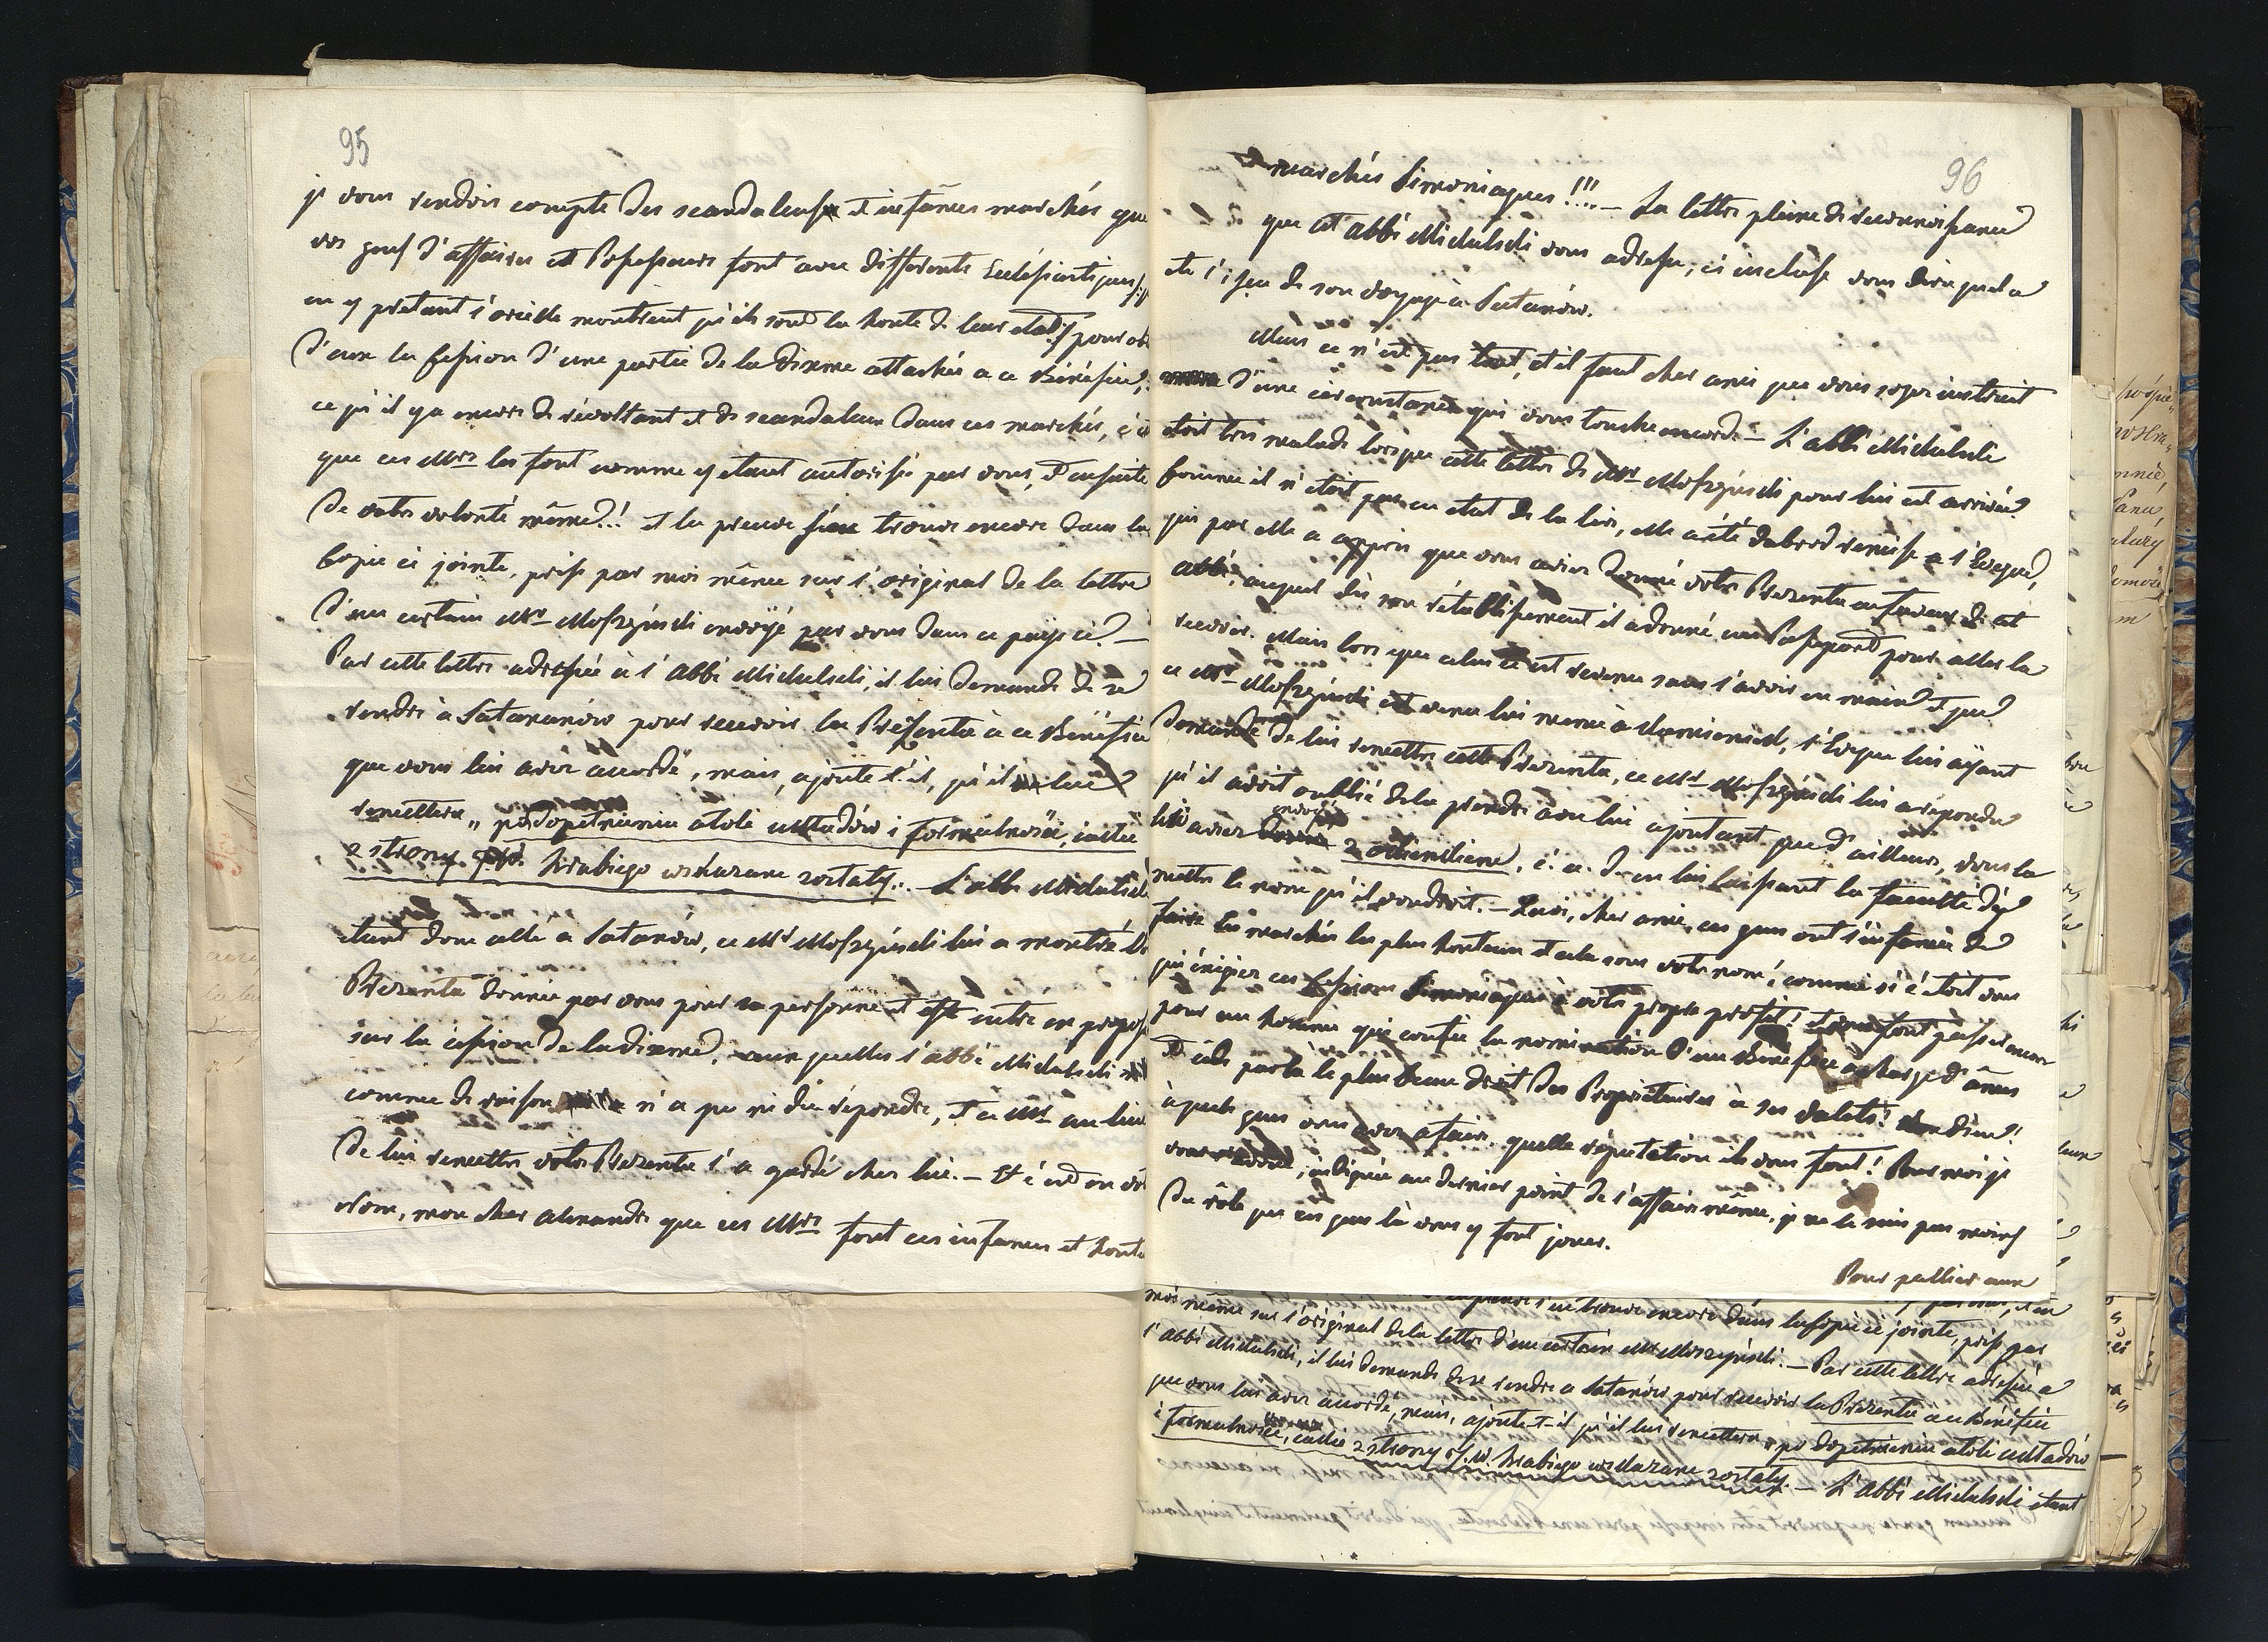 95
je vous rendois compte des scandaleux et infâmes marchés que
vos gens d'affaires et Possesseurs font avec differents Ecclésiastiques,
en y pretant l'oreille montrent qu'ils sont la honte de leur etat, pour
d'eux la Cession d'une partie de la dixme attachée a ce Bénéfice,
ce qu'il y a encore de révoltant et de scandaleux dans ces marchés, c'
que ces Mrs les font comme y etant autorisés par vous, et ensuite
de votre volonté même!! et la preuve s'en trouve encore dans la
Copie ci jointe, prise par moi même sur l'original de la lettre
d'un certain Mr Moszyński envoyé par vous dans ce pays ci. —
Par cette lettre adressée à l'Abbé Michalski, il lui demande de se
rendre à Satanów pour recevoir la Présenta à ce Bénéfice
que vous lui avez accordé, mais, ajoute t'il, qu'il lui
remettera „ po dopełnieniu atoli układów i formalności, iakie
z strony Hrabiego wskazane zostały. — L'abbé Michalski
etant donc allé a Satanów, ce Mr Moszyński lui a montré la
Prezenta donnée par vous pour sa personne et est entré en
sur la cession de la dixme, aux quelles l'abbé Michalski
comme de raison n'a pu ni dû répondre, et ce Mr au lieu
de lui remettre votre Prezenta l'a gardé chez lui. — Et c'est en
Nom, mon cher Alexandre que ces Mrs font ces infames et
96
marchés Simoniaques!!! — La lettre pleine de reconnoissance
que cet abbé Michalski vous adresse, ci incluse vous dira quel a
eté l'issu de son voyage à Satanów.
Mais ce n'est pas tout, et il faut cher ami que vous soyez instruit
d'une circonstance qui vous touche encore. — L'abbé Michalski
etoit tres malade lorsque cette lettre de Mr Moszyński pour lui est arrivée.
Comme il n'etoit pas en etat de la lire, elle a été dabord remise a l'Evêque,
qui par elle a appris que vous aviez donné votre Prezenta en faveur de cet
abbé, auquel dès son rétablissement il a donné un Passeport pour aller la
recevoir. Mais lors que celui ci est revenu sans l'avoir en main et que
ce Mr Moszyński est venu lui meme à Kamieniec, l'Evêque lui ayant
demandé de lui remettre cette Prezenta, ce Mr Moszyński lui a repondu
qu'il avoit oublié de la prendre avec lui ajoutant que d'ailleurs, vous la
lui aviez envoyé z okienkiem, c. a. d. en lui laissant la faculté d'y
mettre le nom qu'il voudroit. — Ainsi, cher ami, ces gens ont l'infamie de
faire les marchés les plus honteux et cela sous votre nom, comme si c'étoit vous
qui exigiez ces Cessions Simoniaques à votre propre profit! et vous font passer encore
pour un homme qui confie la nomination d'un Bénéfice à charge d'ames
et cède par là le plus beau droit des Propriétaires à ses valets!
à quels gens vous avez afaire, quelle réputation ils vous font! Pour moi je
vous , indignée au dernier point de l'affaire même, je ne le suis pas moins
du rôle que ces gens là vous y font jouer.
Pour pallier aux
s'en trouve encore dans la Copie ci jointe, prise par
moi même sur l'original de la lettre d'un certain Mr Moszyński. — Par cette lettre adressée a
l'Abbé Michalski, il lui demande de se rendre a Satanów pour recevoir la Prezenta au Bénéfice
que vous lui avez accordé, mais, ajoute-t-il qu'il lui remettera „ po dopełnieniu atoli układów
i formalności, iakie z strony J. W. Hrabiego wskazane zostały. — L'Abbé Michalski etant